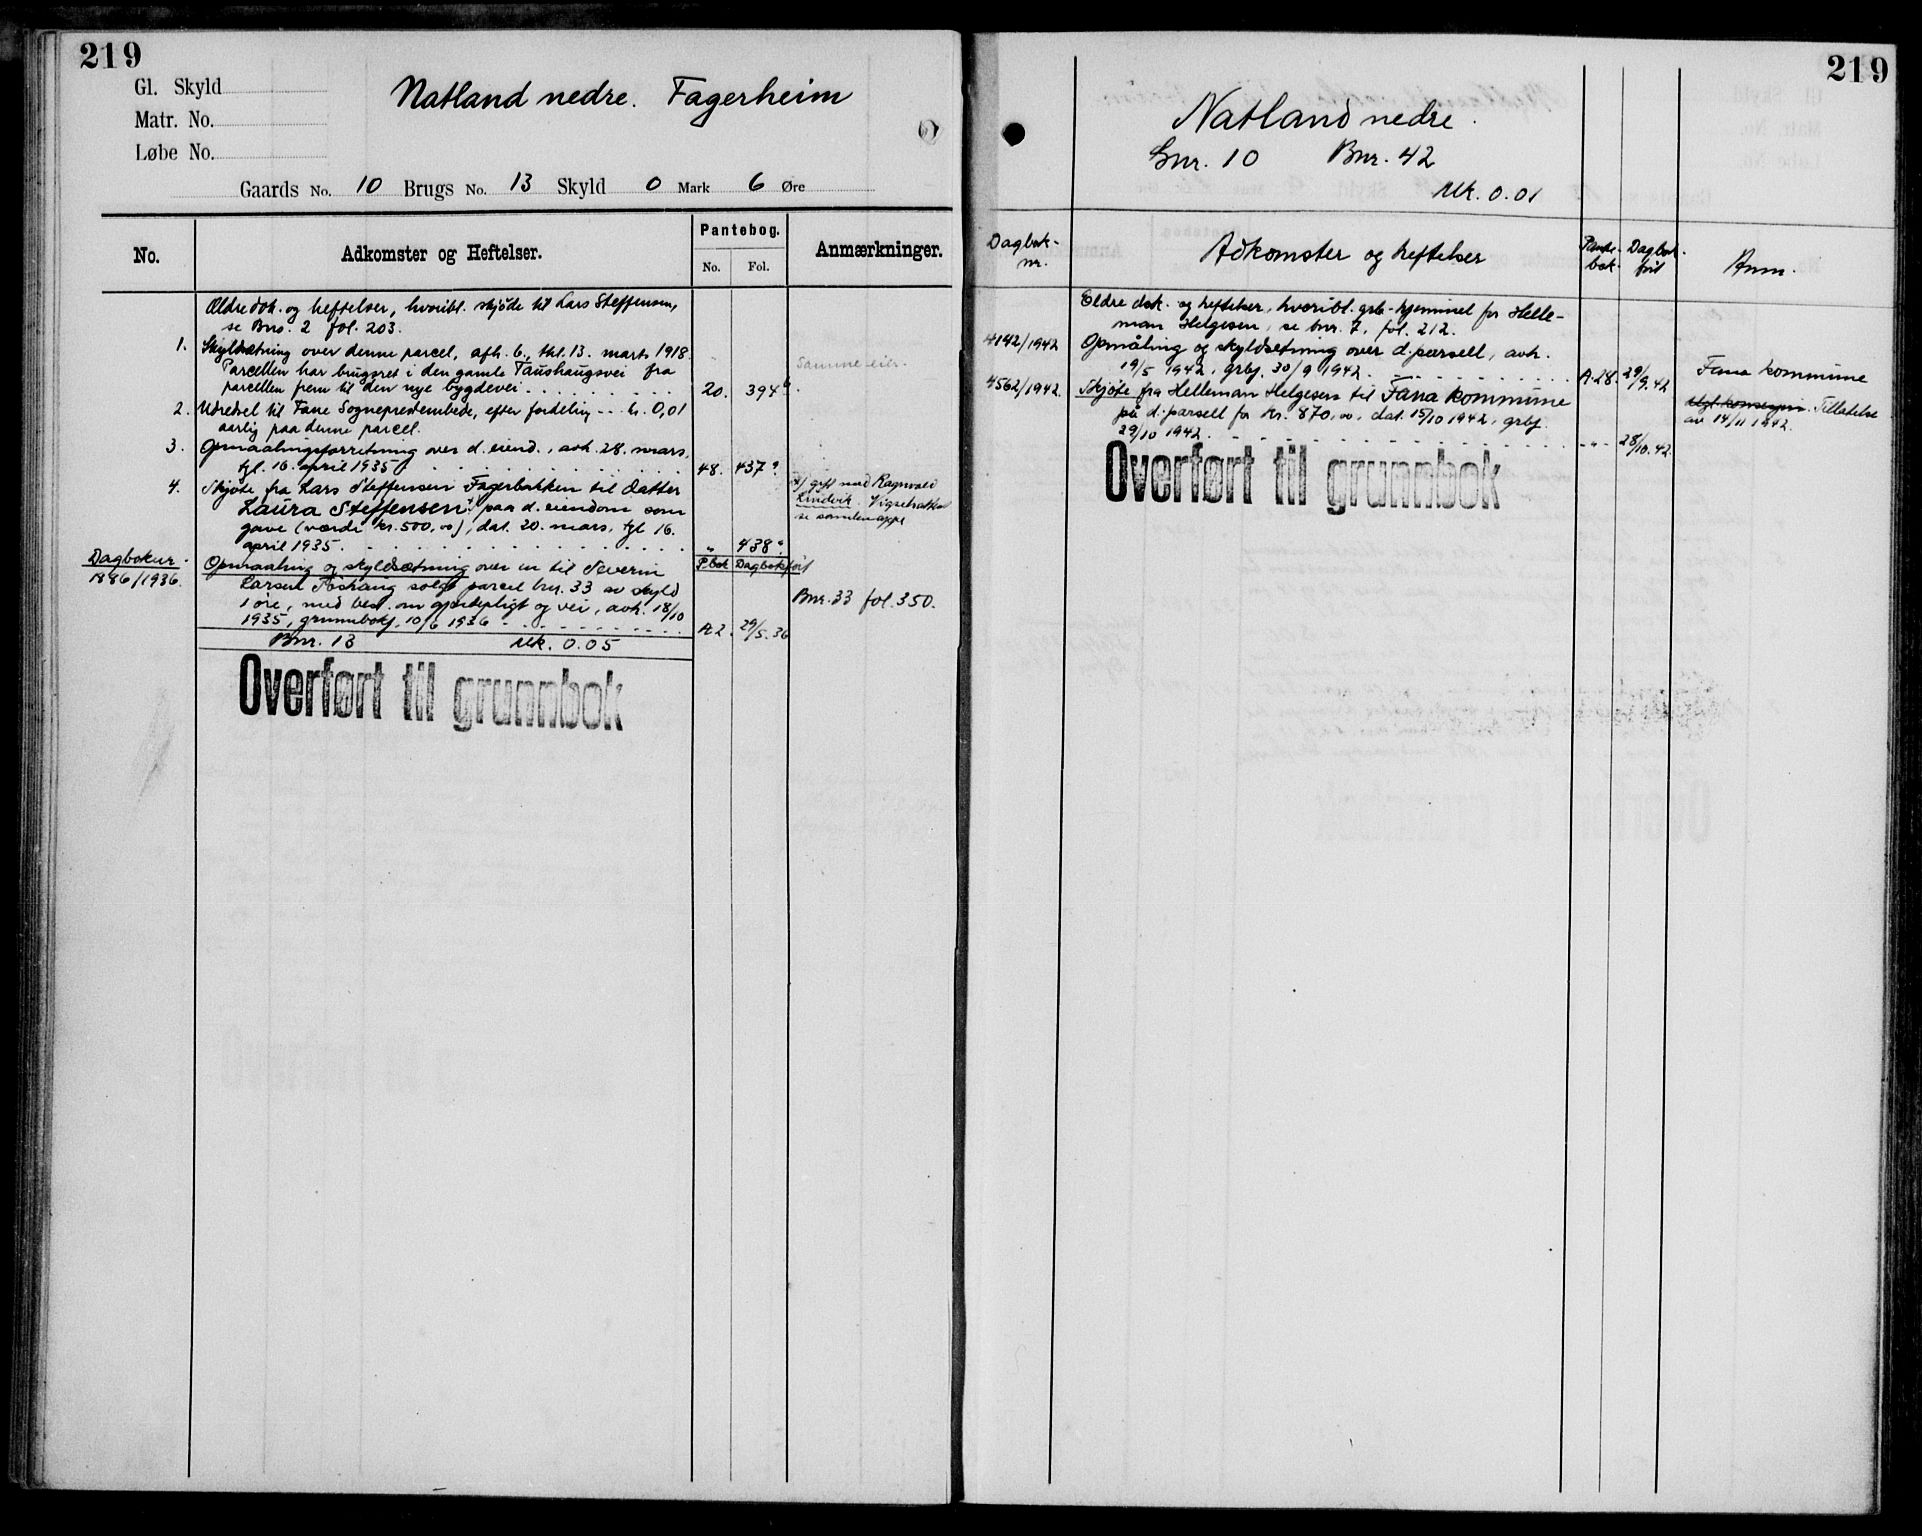 219
Gl. Skyld
Matr. No.
Løbe No.
Natland nedre. Fagerheim
Gaards No. 10 Brugs No. 13 Skyld 0 Mark 6 Øre
No.
Adkomster og Heftelser.
Pantebog.
No. Fol.
Anmærkninger.
Ældre dok. og heftelser, hvoribl. skjøde til Lars Steffensen,
se Bno. 2 fol. 203.
1. Skyldsætning over denne parcel, afh. 6., thl. 13. marts 1918.
Parcellen har brugsret i den gamle Taushaugsvei fra
parcellen frem til den nye bygdevei 20. 394 b.
Samme eier.
2. Udredsel til Fane Sogneprestembede, efter fordeling --- kr. 0,01
aarlig paa denne parcel.
3. Opmaalingsforretning over d. eiend., avh. 28. mars,
tgl. 16. april 1935 48. 437
4. Skjøte fra Lars Steffensen Fagerbakken til datter
Laura Steffensen x) paa d. eiendom som
gave (værdi kr. 500,00), dat. 20. mars, tgl 16.
april 1935. " 438
x) gift med Ragnvald
Lindvik.
se samlemappe
Dagboknr.
1886/1936.
P.bok Dagbokført
Opmaaling og skyldsætning over en til Severin
Larsen solgt parcel bnr. 33 av skyld
1 øre, med best. om gjerdepligt og vei, avh. 18/10
1935, grunnbokf. 10/6 1936 A 2. 29/5.36
Bnr. 33 fol. 350.
Bnr. 13 Mk. 0.05
Overført til grunnbok
219
Natland nedre.
Gnr. 10 Bnr. 42
Mk. 0.01
Dagbok-
nr.
Adkomster og heftelser
Pante-
bok
Dagbok-
ført
Anm.
Eldre dok. og heftelser, hvoribl. grb.-hjemmel for Helle-
man Helgesen, se bnr. 7, fol. 212.
4142/1942 Opmåling og skyldsetning over d. parsell, avh.
19/5 1942, grbf. 30/9 1942. A.28. 29/9.42
4562/1942. Skjøte fra Helleman Helgesen til Fana kommune
på d. parsell for kr. 870,00, dat. 15/10 1942, grbf.
29/10 1942. -"- 28/10.42.
Fana kommune
Tillatelse
av 14/11 1942.
Overført til grunnbok